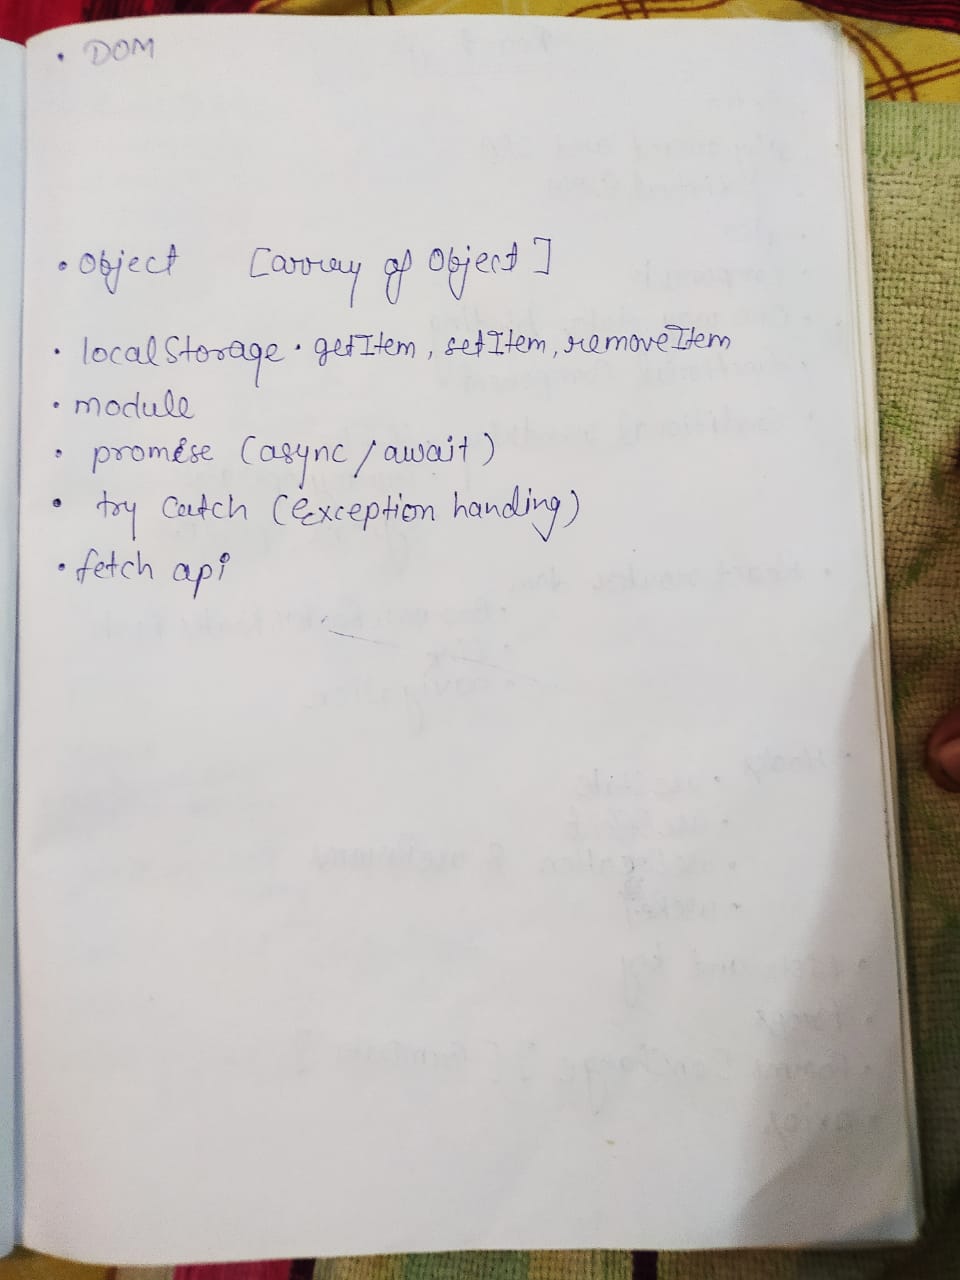 • DOM
• Object [array of Object]
• localStorage • getItem, setItem, removeItem
• module
• promise (async / await)
• try catch (exception handing)
• fetch api